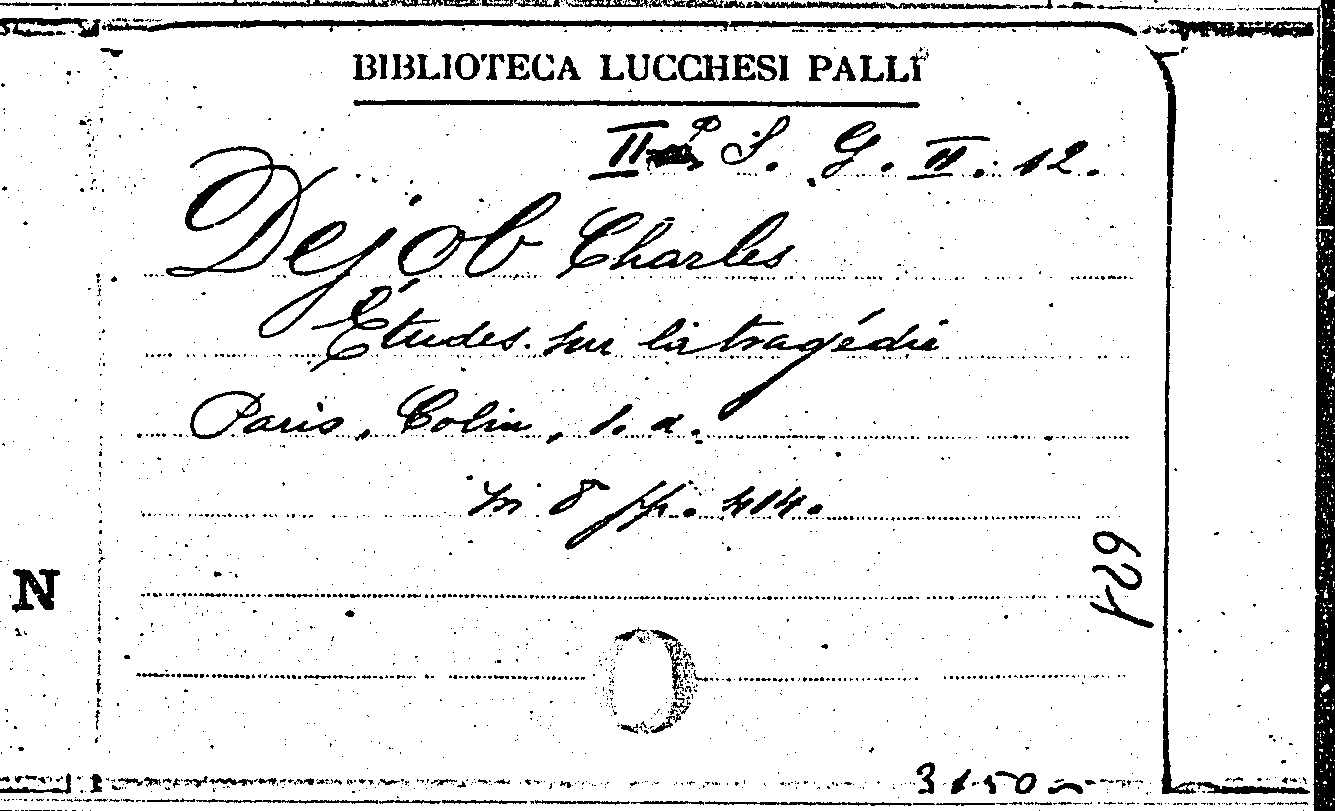 BIBLIOTECA LUCCHESI PALLI
II S. G. II. 12.
Dejob Charles
Études sur la tragédie
Paris, Colin, s. a.
in 8 pp. 414.
621
N
3150